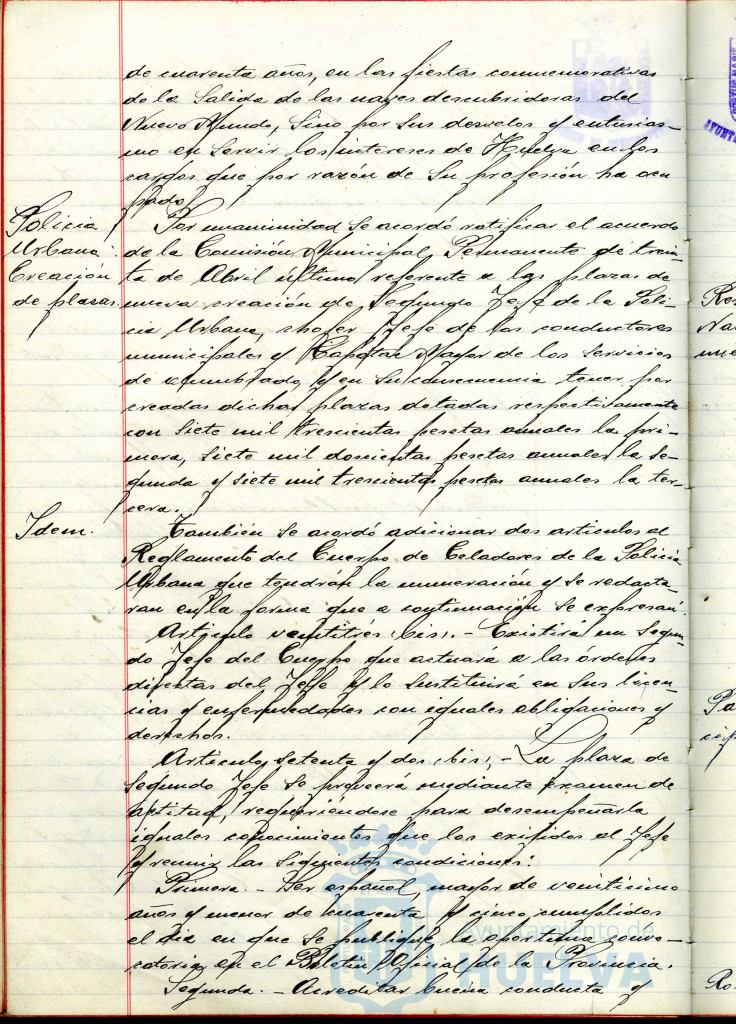 de cuarenta años, en las fiestas conmemorativas
de la Salida de las naves descubridoras del
Nuevo Mundo, Sino por sus desvelos y entusias-
mo en Servir los intereses de Huelva en los
cargos que por razón de Su profesión ha ocu
pado.
Policia
Urbana.
Creación
de plazas.
Por unanimidad se acordó ratificar el acuerdo
de la Comisión Municipal Permanente de trein-
ta de Abril último referente a las plazas de
nueva creación de Segundo Jefe de la Poli-
cia Urbana, chofer Jefe de los conductores
municipales y Capataz Mayor de los Servicios
de alumbrado, y en Su consecuencia tener por
creadas dichas plazas dotadas respectivamente
con Siete mil trescientas pesetas anuales la pri-
mera, Siete mil doscientas pesetas anuales la Se-
gunda y Siete mil trescientas pesetas anuales la ter-
cera.
Idem.
También se acordó adicionar dos articulos al
Reglamento del Cuerpo de Celadores de la Policia
Urbana que tendrán la numeración y se redacta-
ran en la forma que a continuación se expresan.
Articulo veintitrés bis.- Existirá un Segun-
do Jefe del Cuerpo que actuará a las órdenes
directas del Jefe y lo Sustituirá en Sus licen-
cias y enfermedades con iguales obligaciones y
derechos.
Articulo setenta y dos bis.- La plaza de
Segundo Jefe Se proveerá mediante examen de
aptitud, requeriéndose para desempeñarla
iguales conocimientos que los exigidos al Jefe
y reunir las Siguientes condiciones:
Primera.- Ser español, mayor de veinticinco
años y menor de cuarenta y cinco cumplidos
el dia en que se publique la oportuna convo-
catoria en el Boletin Oficial de la Provincia.
Segunda.- Acreditar buena conducta y
Ayuntamiento de
HUELVA